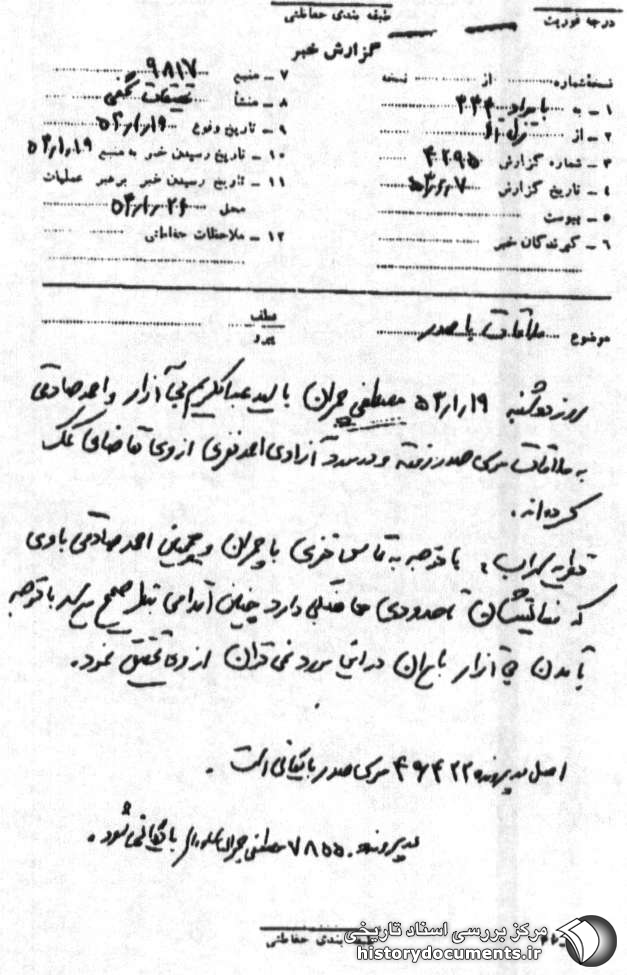 درجه فوریت
طبقه بندی حفاظتی
گزارش خبر
نسخه شماره از نسخه
۱ ـ به بامداد ۳۴۴
۲ ـ از
۳ ـ شماره گزارش ۴۲۹۵
۴ ـ تاریخ گزارش
۵ ـ پیوست
۶ ـ گیرندگان خبر
۷ ـ منبع ۹۸۱۷
۸ ـ منشأ تحقیقات
۹ ـ تاریخ وقوع ۵۳/۱/۱۹
۱۰ ـ تاریخ رسیدن خبر به منبع ۵۳/۱/۱۹
۱۱ ـ تاریخ رسیدن خبر برهبر عملیات
محل ۵۳/۱/۲۶
۱۲ ـ ملاحظات حفاظتی
موضوع ملاقات با صدر
عطف
پیرو
روز دوشنبه ۵۳/۱/۱۹ مصطفی چمران با سید عبدالکریم بی آزار و احمد صادقی
به ملاقات موسی صدر رفته و در مورد آزادی احمد نفری از وی تقاضای کمک
کرده‌اند.
نظریه سهراب: با توجه به تماس نفری با چمران و همچنین احمد صادقی با وی
که فعالیتشان تا حدودی مخفی دارد چنین اقدامی بنظر صحیح میرسد با توجه
بآمدن بی آزار بایران در این مورد نمی‌توان از وی تحقیق نمود.
اصل در پرونده ۴۹۴۲۲ موسی صدر بایگانی است.
در پرونده ۷۸۵۵۰ مصطفی چمران بایگانی شود.
طبقه بندی حفاظتی
مرکز بررسی اسناد تاریخی
historydocuments.ir